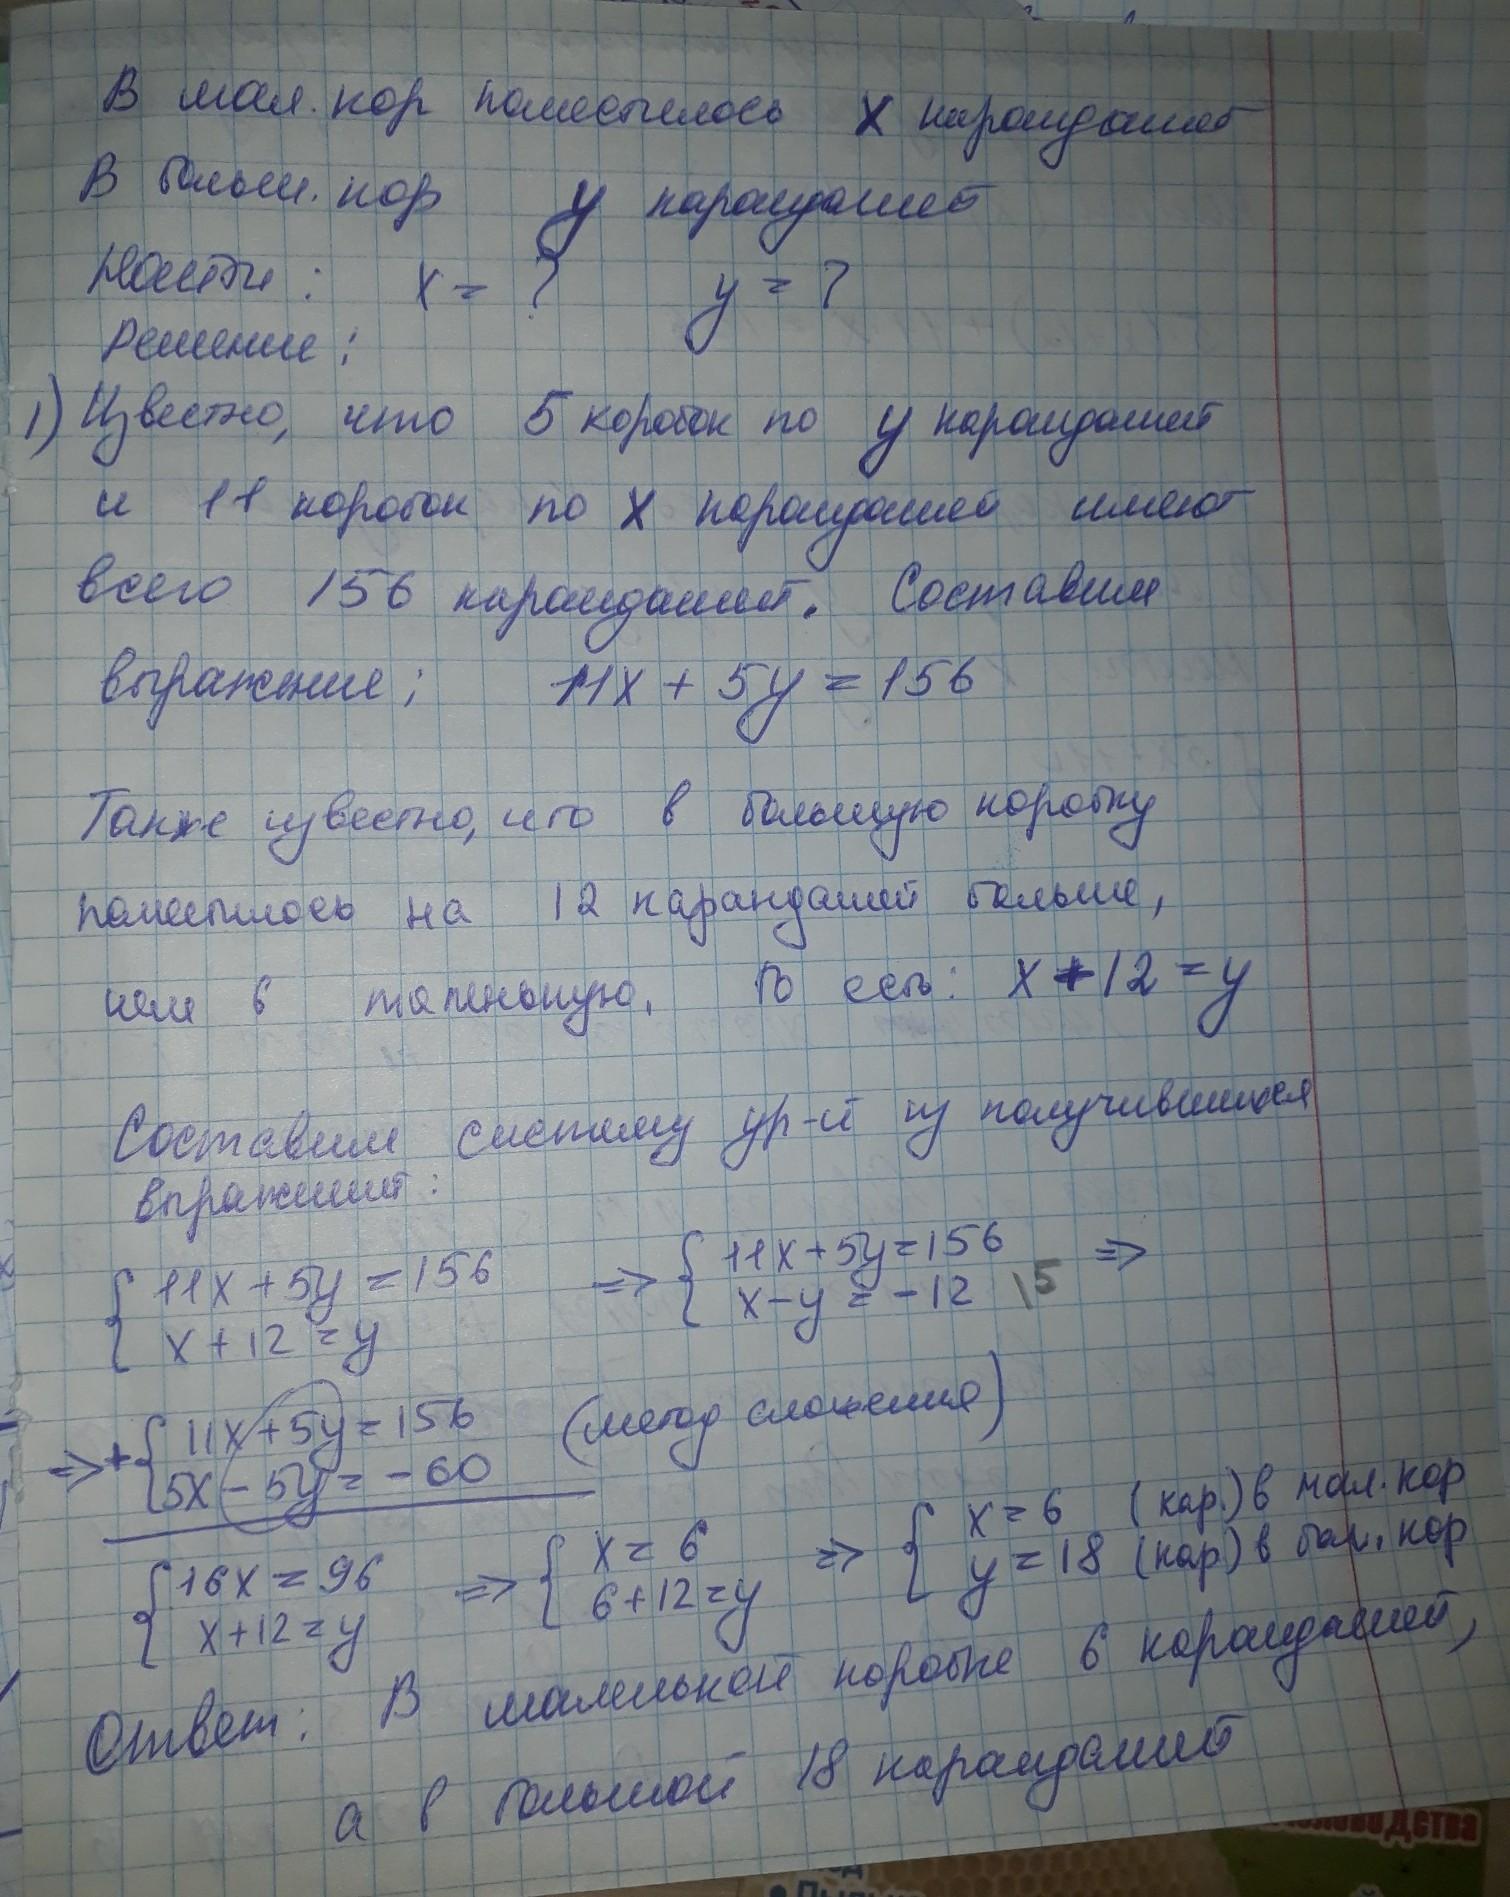 В мал. кор поместилось x карандашей
В больш. кор y карандашей
Найти: x = ? y = ?
Решение:
1) Известно, что 5 коробок по y карандашей
и 11 коробок по x карандашей имеют
всего 156 карандашей. Составим
выражение: 11x + 5y = 156
Также известно, что в большую коробку
поместилось на 12 карандашей больше,
чем в маленькую. То есть: x + 12 = y
Составим систему ур-й из получившихся
выражений:
{ 11x + 5y = 156 => { 11x + 5y = 156 =>
x + 12 = y x - y = -12 | 5
=> + { 11x + 5y = 156 (метод сложения)
5x - 5y = -60
{ 16x = 96 => { x = 6 => { x = 6 (кар.) в мал. кор
x + 12 = y 6 + 12 = y y = 18 (кар) в бол. кор
Ответ: В маленькой коробке 6 карандашей,
а в большой 18 карандашей
водства